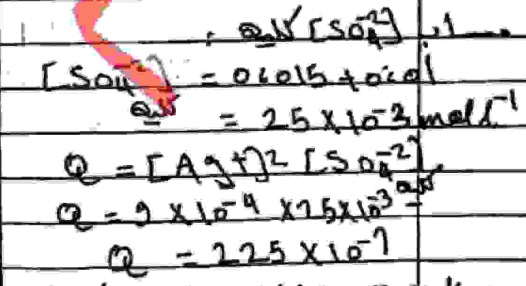 [SO₄⁻²]
[SO₄⁻²] = 0.015 + 0.01
= 25 × 10⁻³ mol L⁻¹
Q = [Ag⁺]² [SO₄⁻²]
Q = 9 × 10⁻⁴ × 25 × 10⁻³
Q = 225 × 10⁻⁷